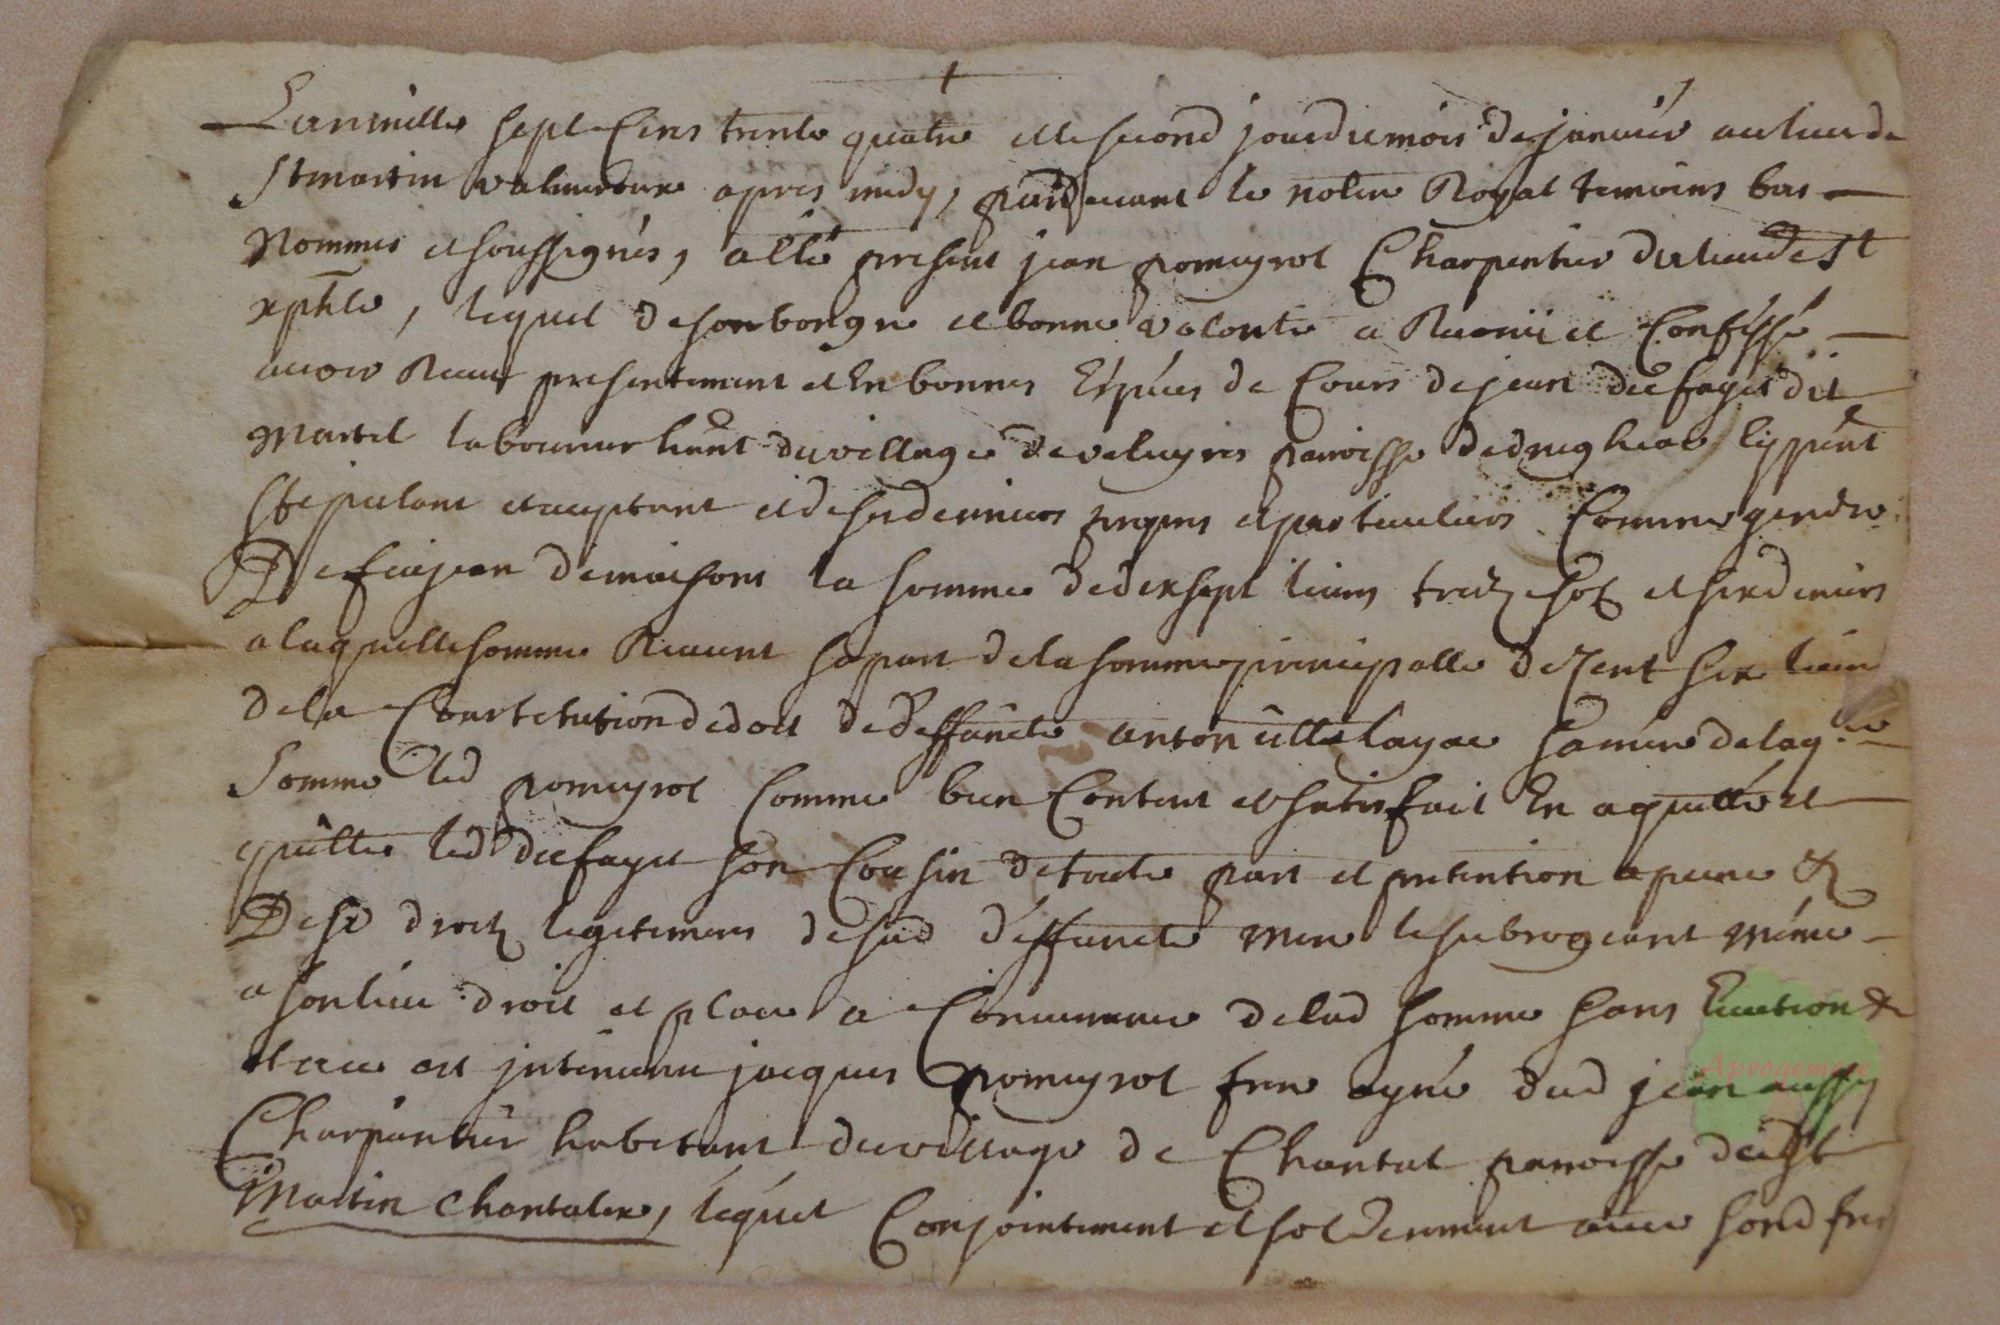 L'an mille sept cens trente quatre et le second jour du mois de janvier au lieu de
St martin valmeroux apres midy, pardevant le notere Royal temoins bas
Nommes et soussignés, a esté present jean pomeyrol Charpentier du lieu de St
xphle, lequel de son bon gre et bonne volonte a Reconü et Confessé
avoir Receu presentement et En bonnes Espéces de Cours de jean dufayet dit
Martel laboureur du village de veleyres paroisse de drugheac, ley
stipulant et aceptant et de ses deniers propres et particuliers Comme gendre
De feu jean demaisons la somme de dix sept livres treize sols et six deniers
a laquelle somme Revient sa part de la somme principalle de Cent six livres
de la Constitution de dot de deffuncte antoniette layac sa mere de laq.le
Somme led pomeyrol Comme bien Content et satisfait En a quitté et
quitte led dufayet son Cousin de toute part et pretention a peine &
De se droits legitimes de sad deffuncte Mere le subrogeant Méme
a son lieu droit et place a Concurrance de lad somme sans Eviction &
et a ce est intervenu jacques pomeyrol frere ayné dud jean aussy
Charpantier habitant du village de Chantal paroisse dud St
Martin Chantales, lequel Conjointement et solidairement avec sond frere
Aprogemere